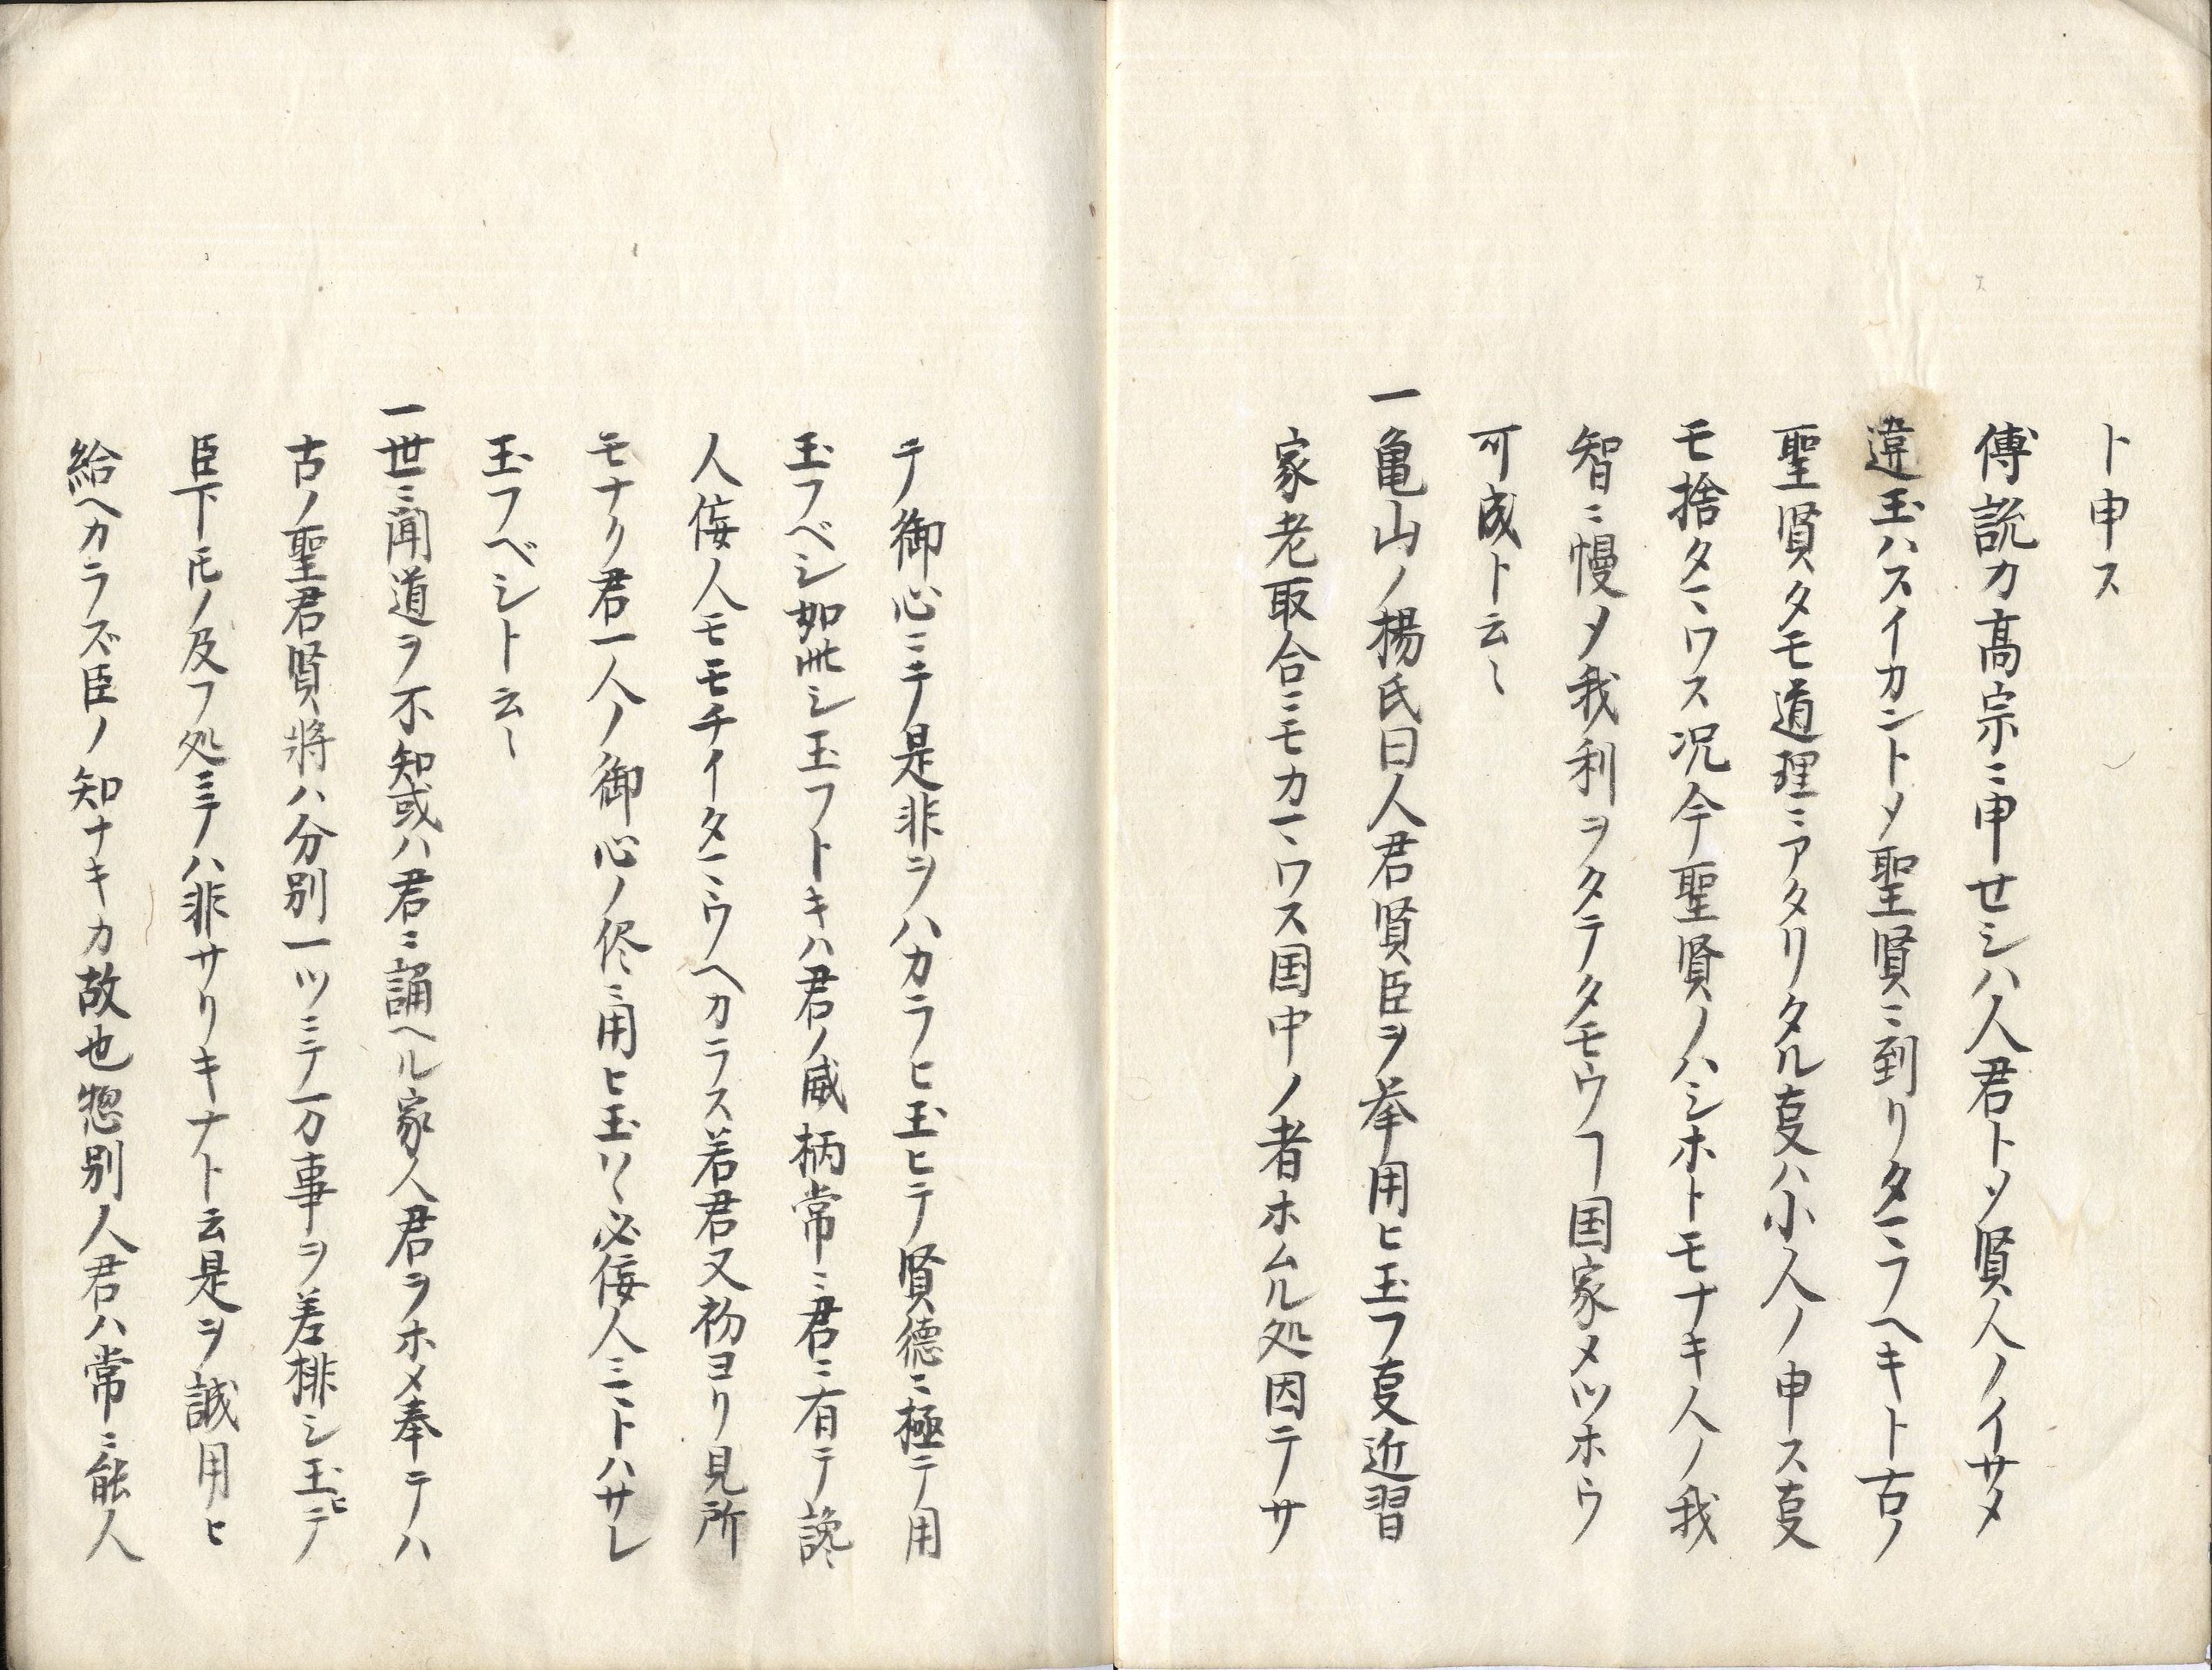 ト申ス
傅説カ高宗ニ申セシハ人君トメ賢人ノイサメ
違玉ハスイカントメ聖賢ニ到リタマラヘキト古ノ
聖賢タモ道理ニアタリタル𫝆ハ小人ノ申ス𫝆
モ捨タマワス况今聖賢ノハシホトモナキ人ノ我
智ニ慢メ我利ヲタテタモウヿ国家メツホウ
可成ト云〻
一亀山ノ楊氏曰人君賢臣ヲ挙用ヒ玉フ𫝆近習
家老取合ニモカマワス国中ノ者ホムル処因テサ
テ御心ニテ是非ヲハカラヒ玉ヒテ賢徳ニ極テ用
玉フベシ如此シ玉フトキハ君ノ威柄常ニ君ニ有テ讒
人侫人モモチイタマウヘカラス若君又初ヨリ見所
モナク君一人ノ御心ノ侭ニ用ヒ玉ハヽ必侫人ニトハサレ
玉フベシト云〻
一世ニ聞道ヲ不知或ハ君ニ諂ヘル家人君ヲホメ奉テハ
古ノ聖君賢将ハ分別一ツニテ万事ヲ差排シ玉ヒテ
臣下𪜈ノ及フ処ニテハ非サリキナト云是ヲ誠用ヒ
給ヘカラズ臣ノ知ナキカ故也惣別人君ハ常ニ能人